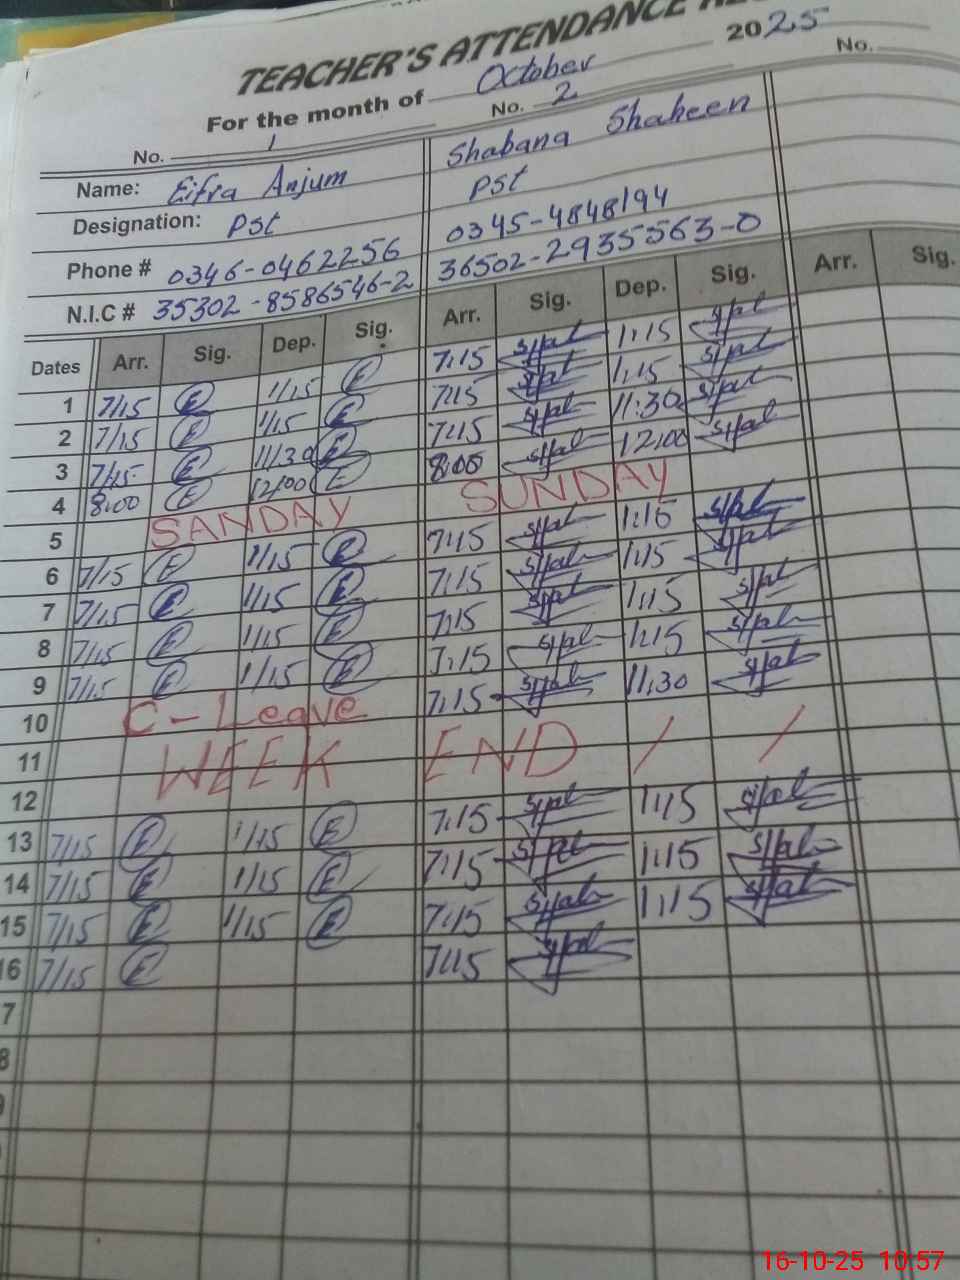 TEACHER'S ATTENDANCE
For the month of October 2025
No. 1 No. 2 No.
Name: Eifra Anjum Shabana Shaheen
Designation: PSt PSt
Phone # 0346-0462256 0345-4848194
N.I.C # 35302-8586546-2 36502-2935563-0
Dates Arr. Sig. Dep. Sig. Arr. Sig. Dep. Sig. Arr. Sig.
1 7/15 E 1/15 E 7:15 1:15
2 7/15 E 1/15 E 7:15 1:15
3 7/15 E 11/30 E 7:15 11:30
4 8:00 E 12/00 E 8:00 12:00
5 SANDAY SUNDAY
6 7/15 E 1/15 E 7:15 1:15
7 7/15 E 1/15 E 7:15 1:15
8 7/15 E 1/15 E 7:15 1:15
9 7/15 E 1/15 E 7:15 1:15
10 C-Leave 7:15 11:30
11 WEEK END / /
12
13 7/15 E 1/15 E 7:15 1:15
14 7/15 E 1/15 E 7:15 1:15
15 7/15 E 1/15 E 7:15 1:15
16 7/15 E 7:15
7
8
16-10-25 10:57